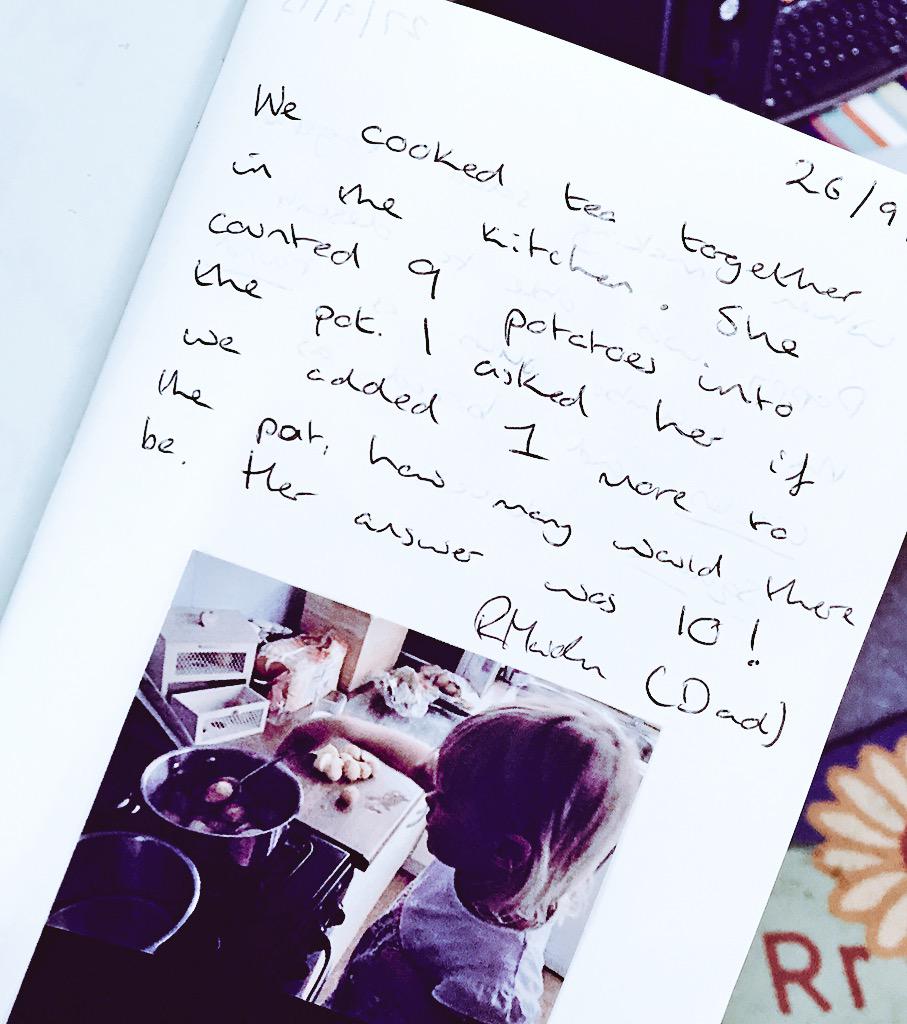 26/9
We cooked tea together
in the kitchen. She
counted 9 potatoes into
the pot. I asked her if
we added 1 more to
the pot, how many would there
be. Her answer was 10!
(Dad)
Rr